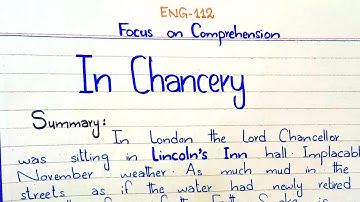 ENG-112
Focus on Comprehension
In Chancery
Summary:
In London the Lord Chancellor
was sitting in Lincoln's Inn hall. Implacable
November weather. As much mud in the
streets as if the water had newly retired